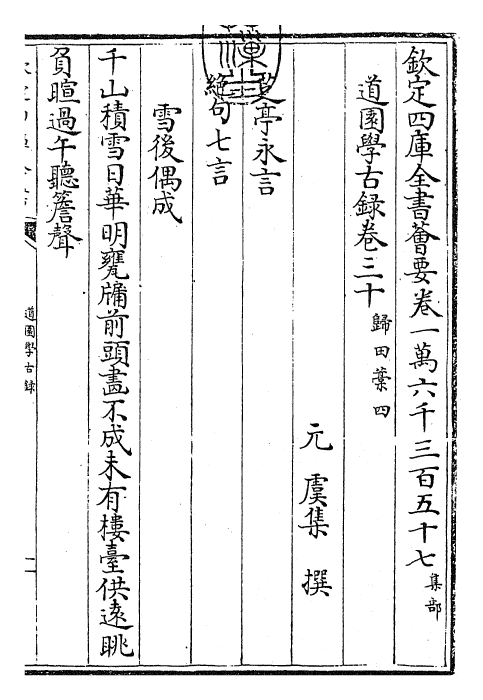 欽定四庫全書薈要卷一萬六千三百五十七 集部
道園學古録卷三十 歸田藁四
元 虞集 撰
芝亭永言
絶句七言
雪後偶成
千山積雪日華明甕牖前頭畫不成未有樓臺供遠眺
負暄過午聽簷聲
道園學古録